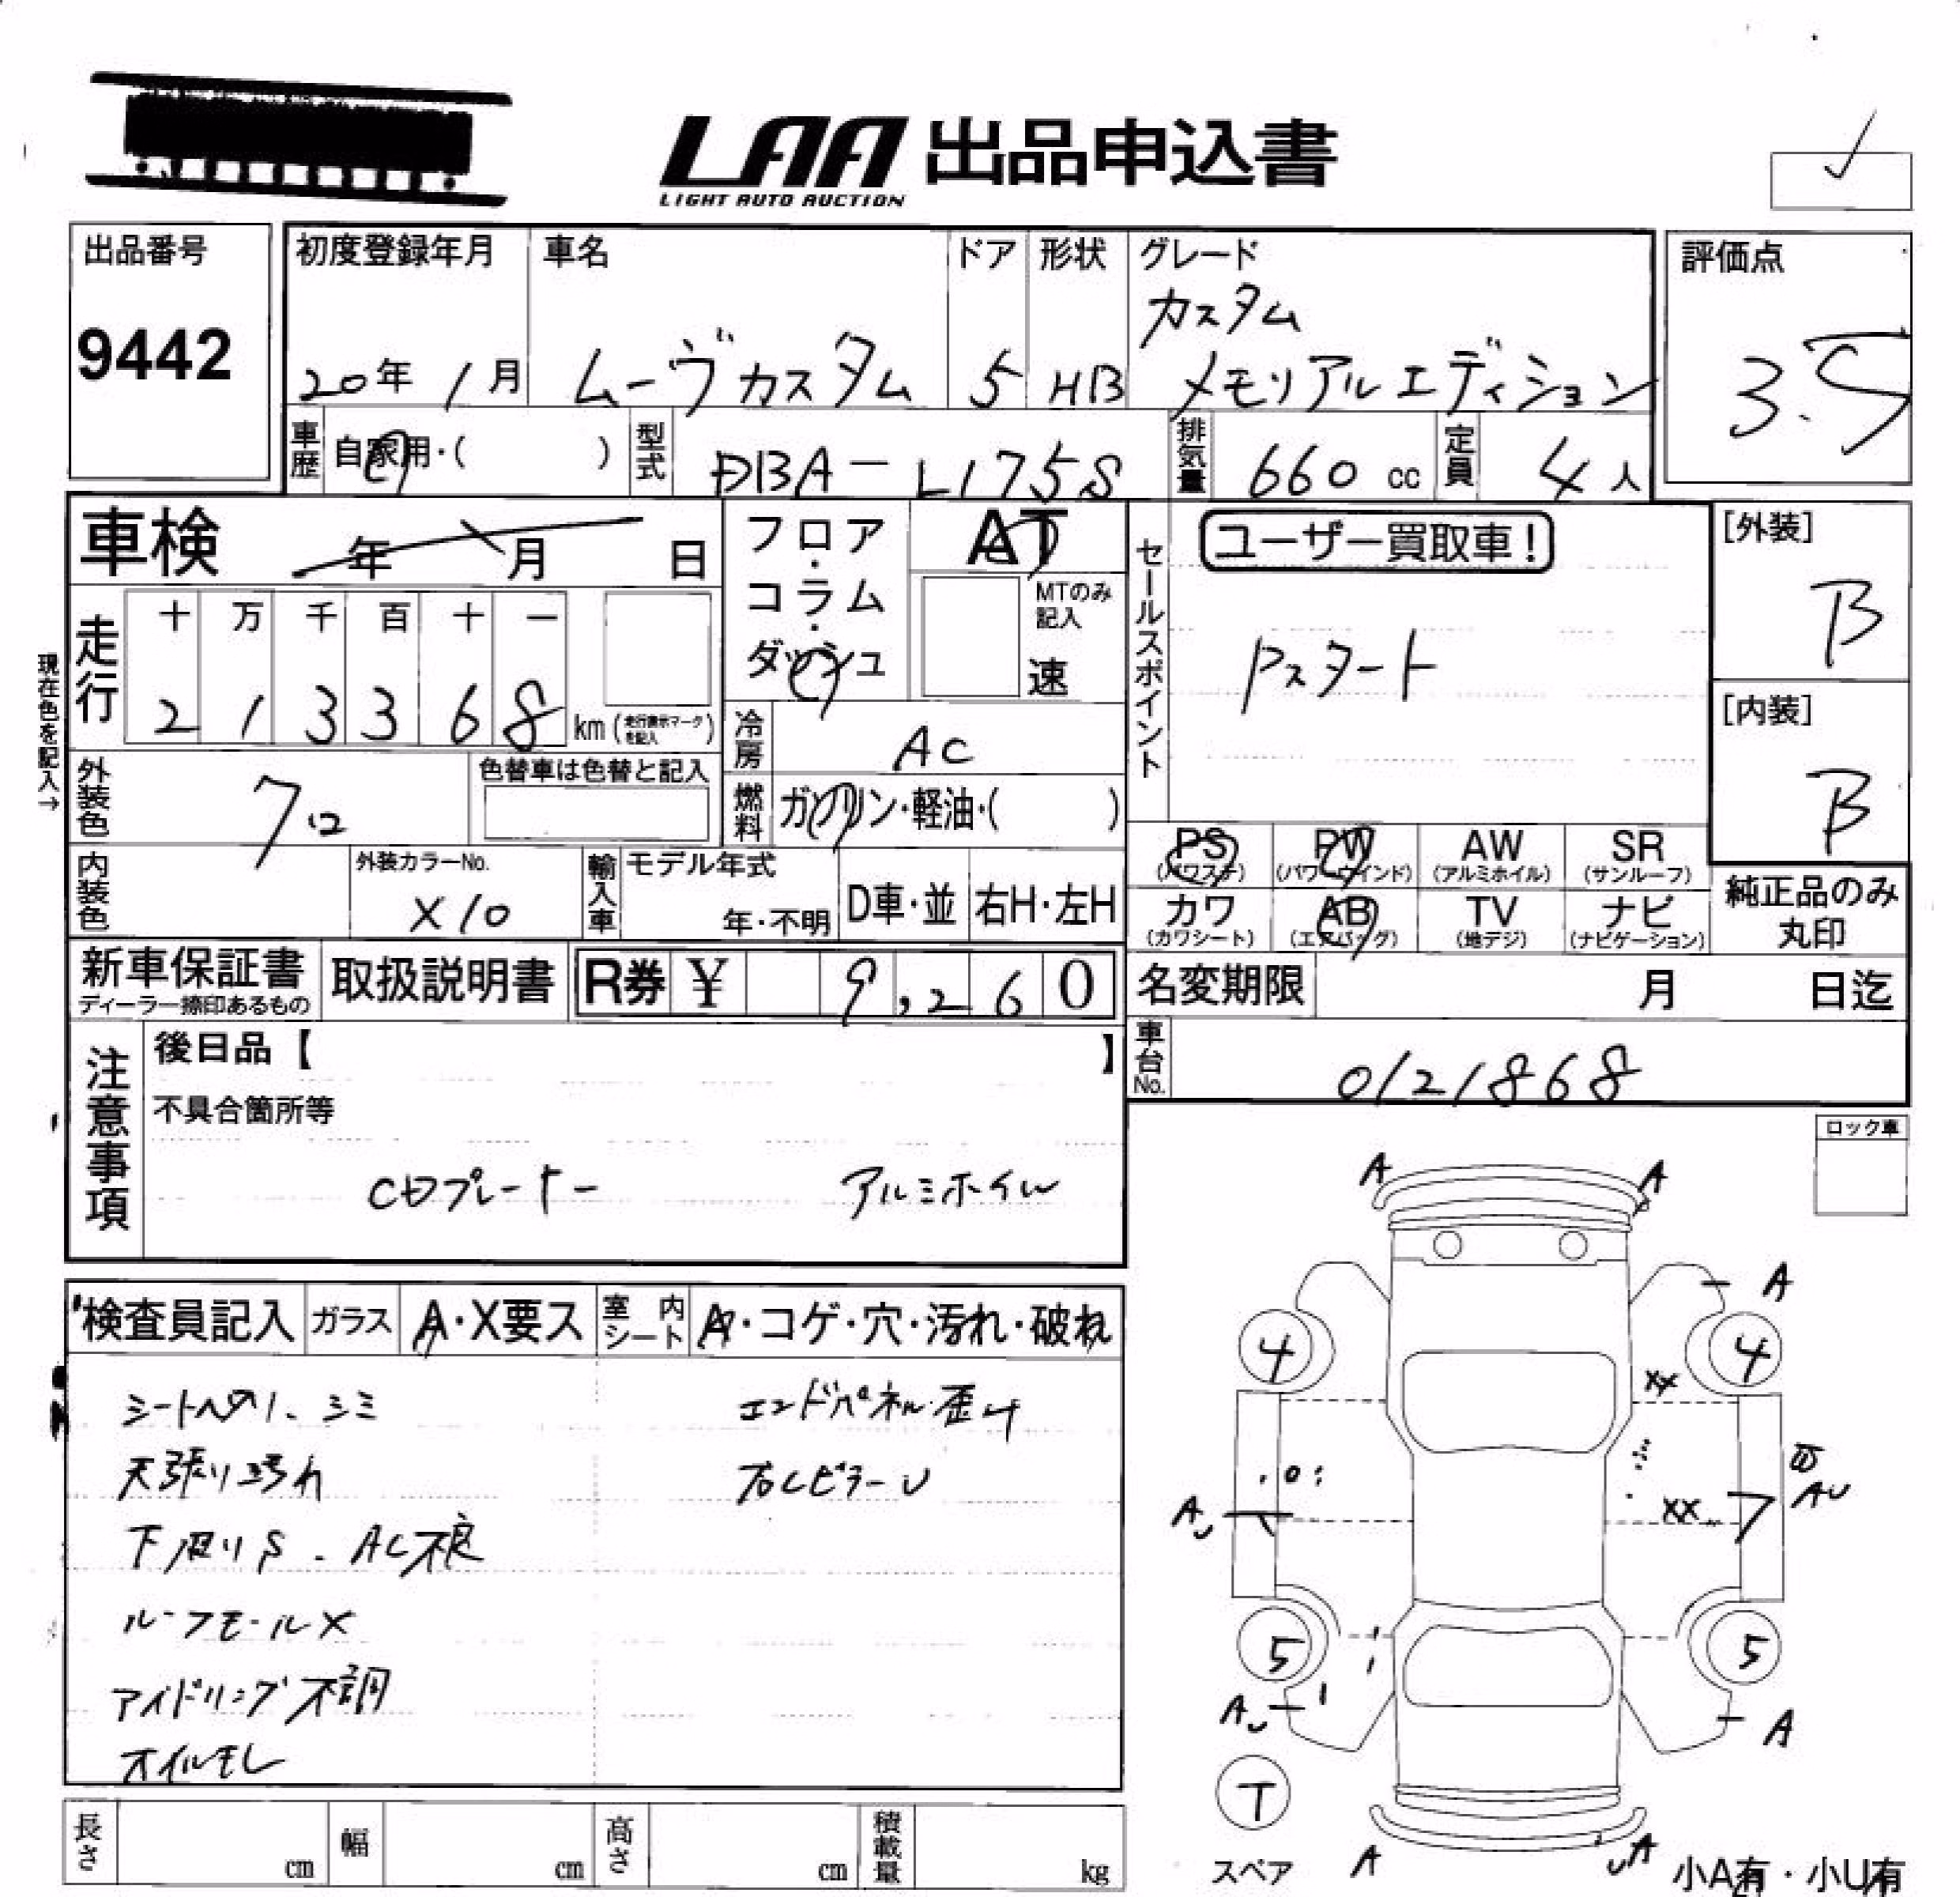 LAA 出品申込書
LIGHT AUTO AUCTION
出品番号
9442
初度登録年月
20年 1月
車名
ムーヴカスタム
ドア
5
形状
HB
グレード
カスタム
メモリアルエディション
評価点
3.5
車歴
自家用・( )
型式
DBA-L175S
排気量
660 cc
定員
4人
車検
年 月 日
フロア・コラム・ダッシュ
AT
MTのみ記入
速
セールスポイント
ユーザー買取車!
Pスタート
[外装]
B
[内装]
B
現在色を記入→
走行
十 万 千 百 十 一
2 1 3 3 6 8
km(走行表示マークを記入)
冷房
AC
燃料
ガソリン・軽油・( )
外装色
クロ
色替車は色替と記入
内装色
外装カラーNo.
X10
輸入車
モデル年式
年・不明
D車・並
右H・左H
PS
(パワステ)
PW
(パワーウインド)
AW
(アルミホイル)
SR
(サンルーフ)
カワ
(カワシート)
AB
(エアバッグ)
TV
(地デジ)
ナビ
(ナビゲーション)
純正品のみ
丸印
新車保証書
ディーラー捺印あるもの
取扱説明書
R券 ¥ 9,260
名変期限
月 日迄
車台No.
0121868
注意事項
後日品【 】
不具合箇所等
CDプレーヤー アルミホイル
ロック車
検査員記入
ガラス
A・X要ス
室内シート
A・コゲ・穴・汚れ・破れ
シートヘタリ、シミ
天張り汚れ
下廻りS、AC不良
ルーフモールX
アイドリング不調
オイルモレ
エンドパネル歪み
右CピラーU
A A
A
4 4
XX
AU
AU
XX
5 5
AU
A
T
スペア
A
UA
小A有・小U有
長さ
cm
幅
cm
高さ
cm
積載量
kg